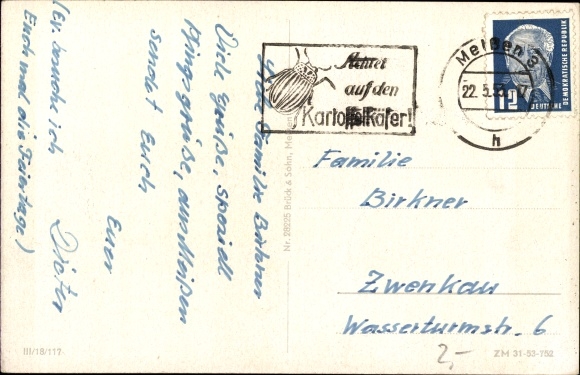 Liebe Familie Birkner
Viele Grüße, speziell
Pfingstgrüße, aus Meißen
sendet Euch
Euer
Dieter
(ev. besuche ich
Euch mal die Feiertage)
Achtet
auf den
Kartoffelkäfer!
Meißen 3
22.5.53
h
12
DEUTSCHE
DEMOKRATISCHE REPUBLIK
Nr. 29225 Brück & Sohn, Meißen
Familie
Birkner
Zwenkau
Wasserturmstr. 6
2,-
III/18/117
ZM 31-53-752